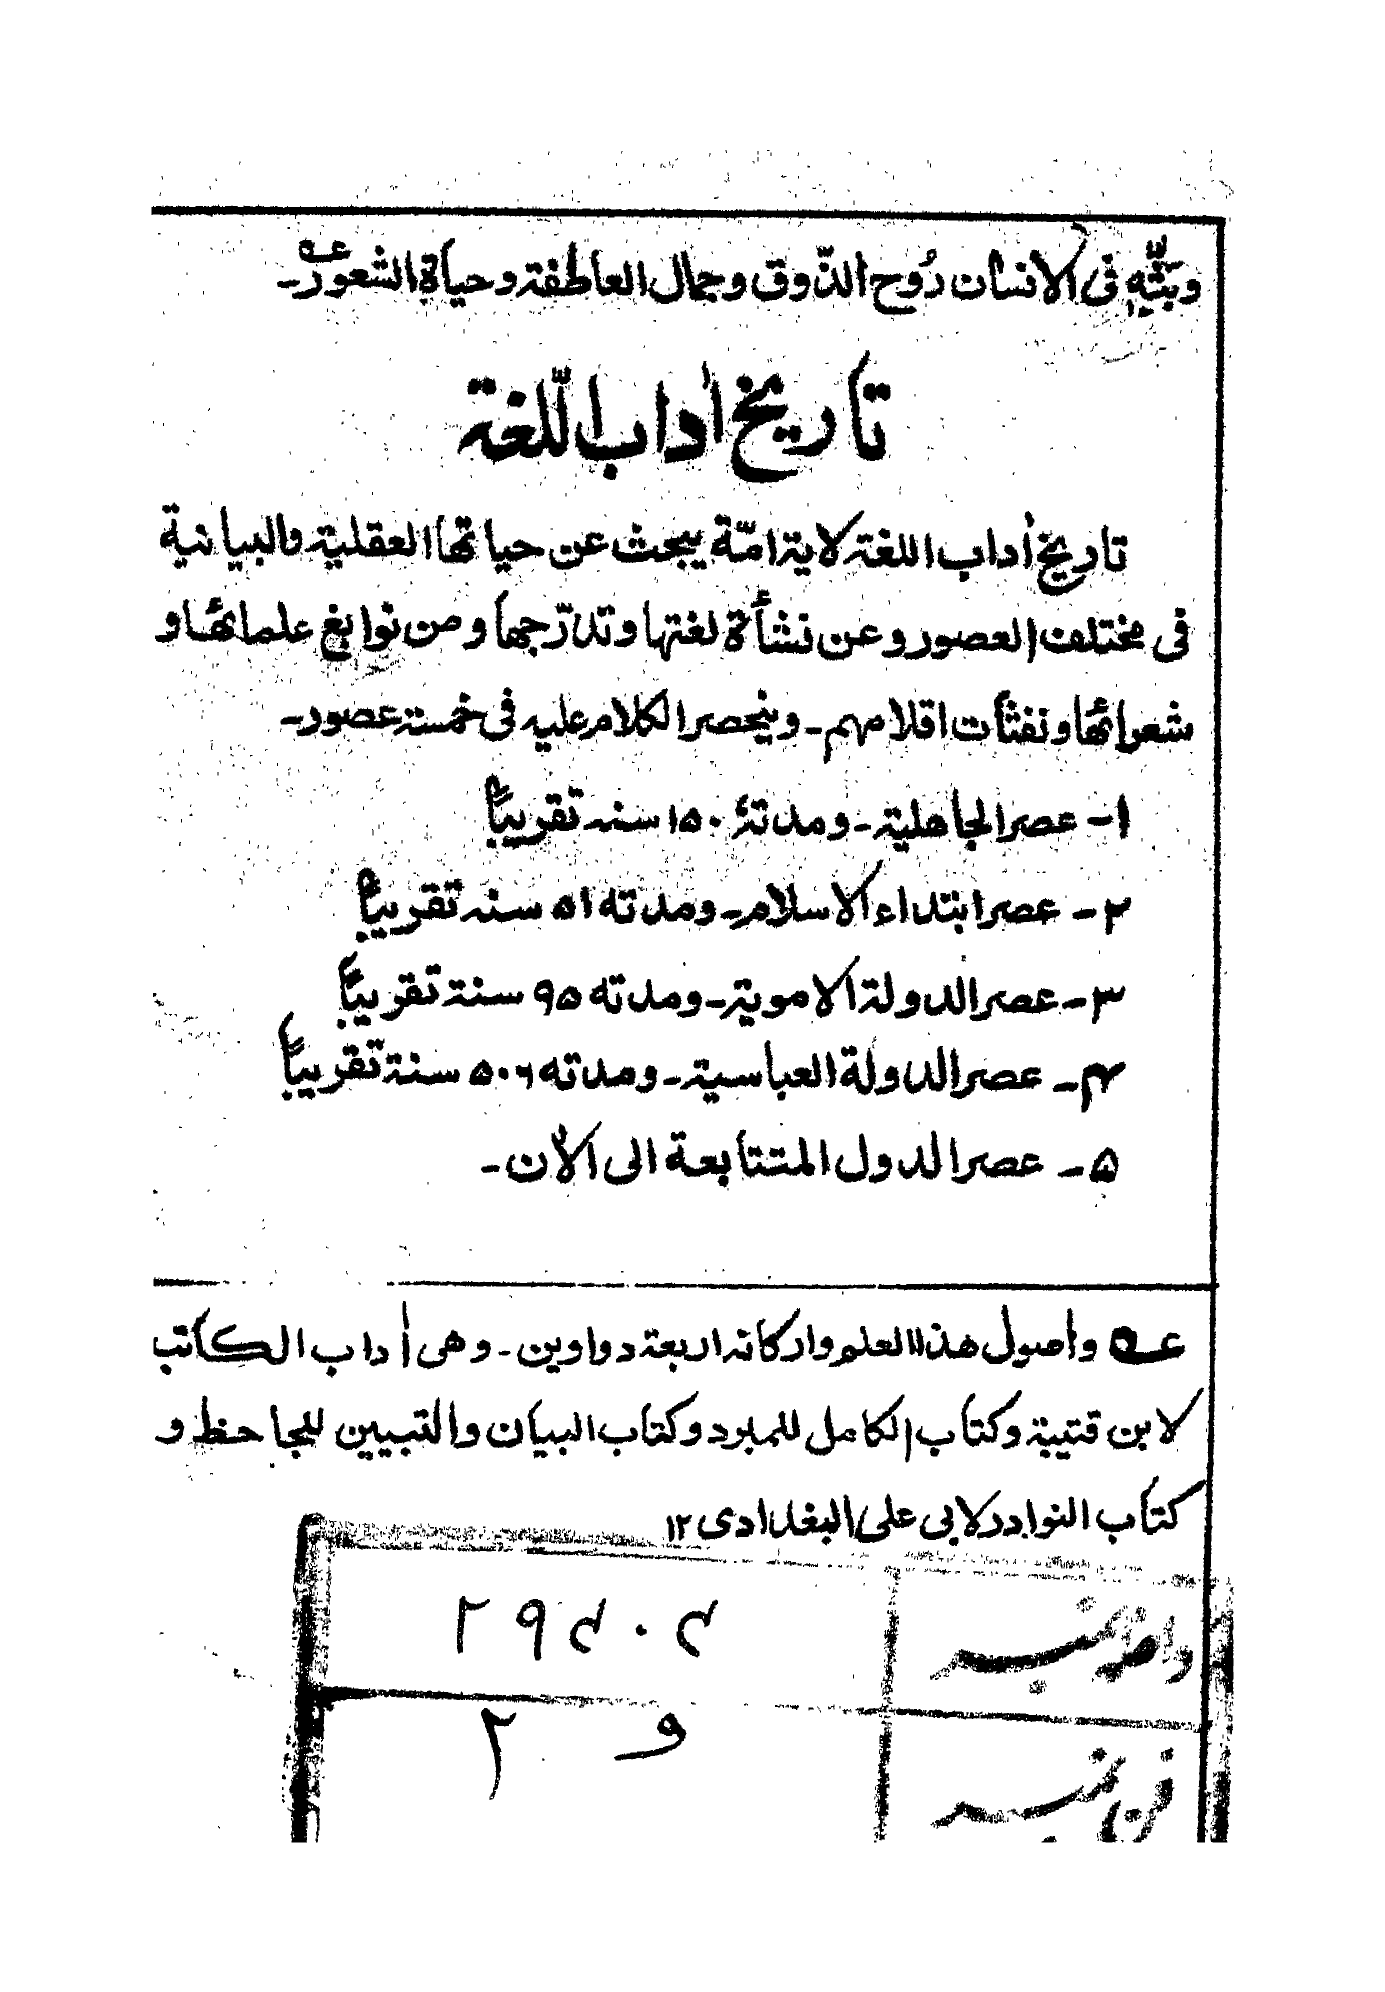 وبَثِّهٖ فى الانسان رُوح الذّوق وجمال العاطفة وحياة الشعور ـ عــه
تاريخ أداب اللّغة
تاريخ أداب اللغة لاية امّة يبحث عن حياتها العقلية والبيانية
فى مختلف العصور وعن نشأة لغتها وتدرّجها ومن نوابغ علمائها و
شعرائها ونفثات اقلامهم ـ وينحصر الكلام عليه فى خمسة عصور ـ
۱ ـ عصر الجاهلية ـ ومدتهٗ ۱۵۰ سنة تقريبًا
۲ ـ عصر ابتداء الاسلام ـ ومدته ۵۱ سنة تقريبًا
۳ ـ عصر الدولة الاموية ـ ومدته ۹۵ سنة تقريبًا
۴ ـ عصر الدولة العباسية ـ ومدته ۵۰۶ سنة تقريبًا
۵ ـ عصر الدول المتتابعة الى الأن ـ
عــه وأصول هذا العلم واركانه اربعة دواوين ـ وهى أداب الكاتب
لابن قتيبة وكتاب الكامل للمبرد وكتاب البيان والتبيين للجاحظ و
كتاب النوادر لابى على البغدادى ۱۲
داخلہ نمبر
فن نمبر